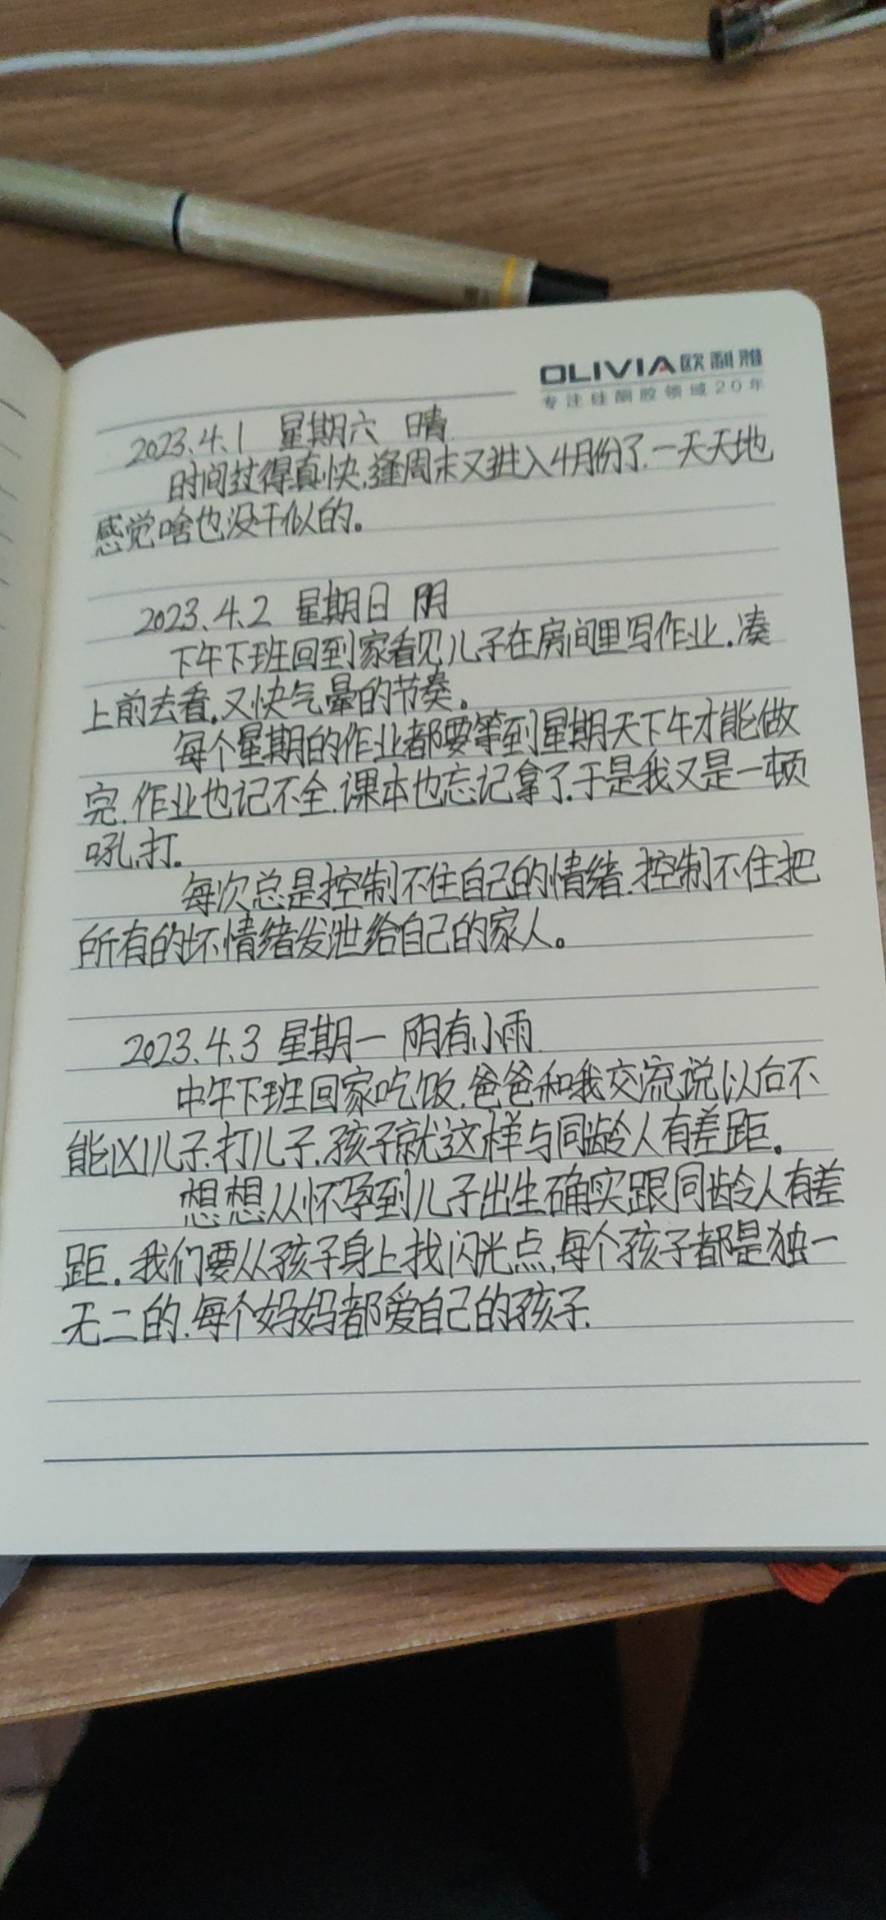 OLIVIA欧利雅
专注硅酮胶领域20年
2023.4.1 星期六 晴
时间过得真快,逢周末又进入4月份了.一天天地
感觉啥也没干似的。
2023.4.2 星期日 阴
下午下班回到家看见儿子在房间里写作业.凑
上前去看.又快气晕的节奏。
每个星期的作业都要等到星期天下午才能做
完.作业也记不全.课本也忘记拿了.于是我又是一顿
吼,打.
每次总是控制不住自己的情绪.控制不住把
所有的坏情绪发泄给自己的家人。
2023.4.3 星期一 阴有小雨
中午下班回家吃饭.爸爸和我交流说以后不
能凶儿子.打儿子.孩子就这样与同龄人有差距。
想想从怀孕到儿子出生确实跟同龄人有差
距.我们要从孩子身上找闪光点,每个孩子都是独一
无二的.每个妈妈都爱自己的孩子.